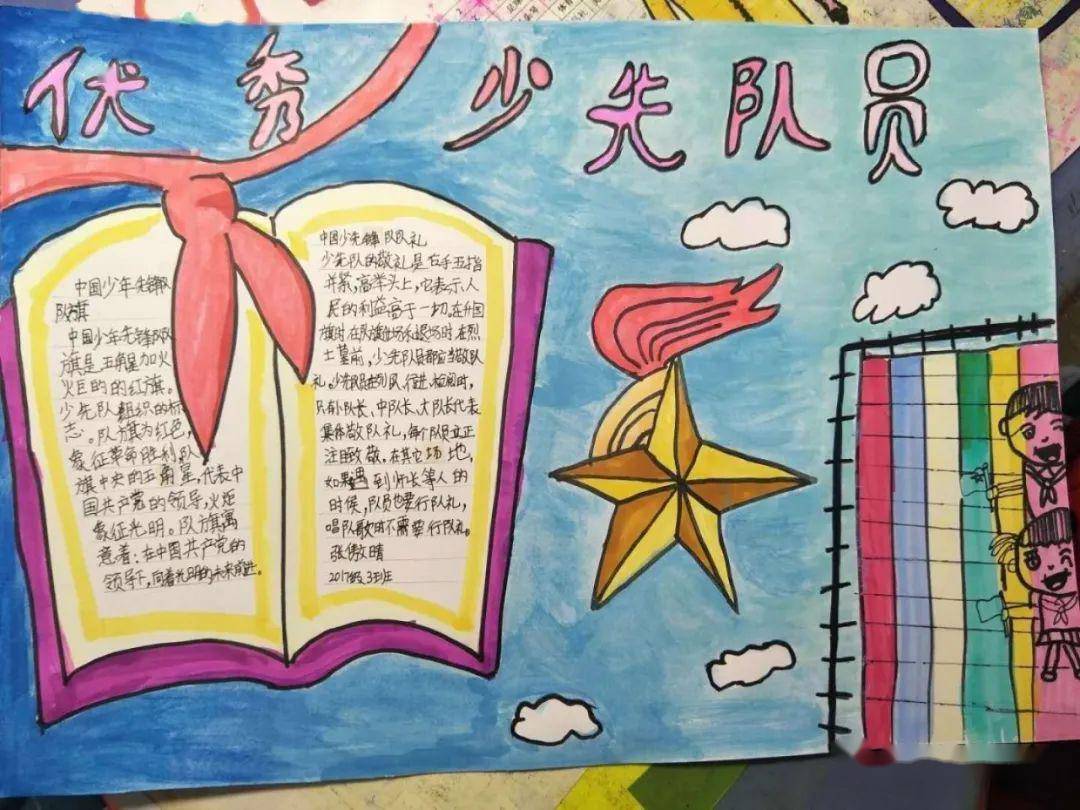 优秀少先队员
中国少年先锋队
队旗
中国少年先锋队队
旗是五角星加火
火巨的的红旗。
少先队组织的标
志。队旗为红色,
象征革命胜利队
旗中央的五角星,代表中
国共产党的领导,火炬
象征光明。队旗寓
意着:在中国共产党的
领导下,向着光明的未来前进。
中国少先锋队队礼
少先队的敬礼是右手五指
并紧,高举头上,它表示人
民的利益高于一切。在升国
旗时在队旗出场和退场时在烈
士墓前,少先队员都应当敬队
礼。少先队员在列队、行进、检阅时,
只有小队长、中队长、大队长代表
集体敬队礼,每个队员立正
注目致敬。在其它场地,
如果遇到师长等人的
时候,队员也要行队礼,
唱队歌时不需要行队礼。
张傲晴
2017级3班